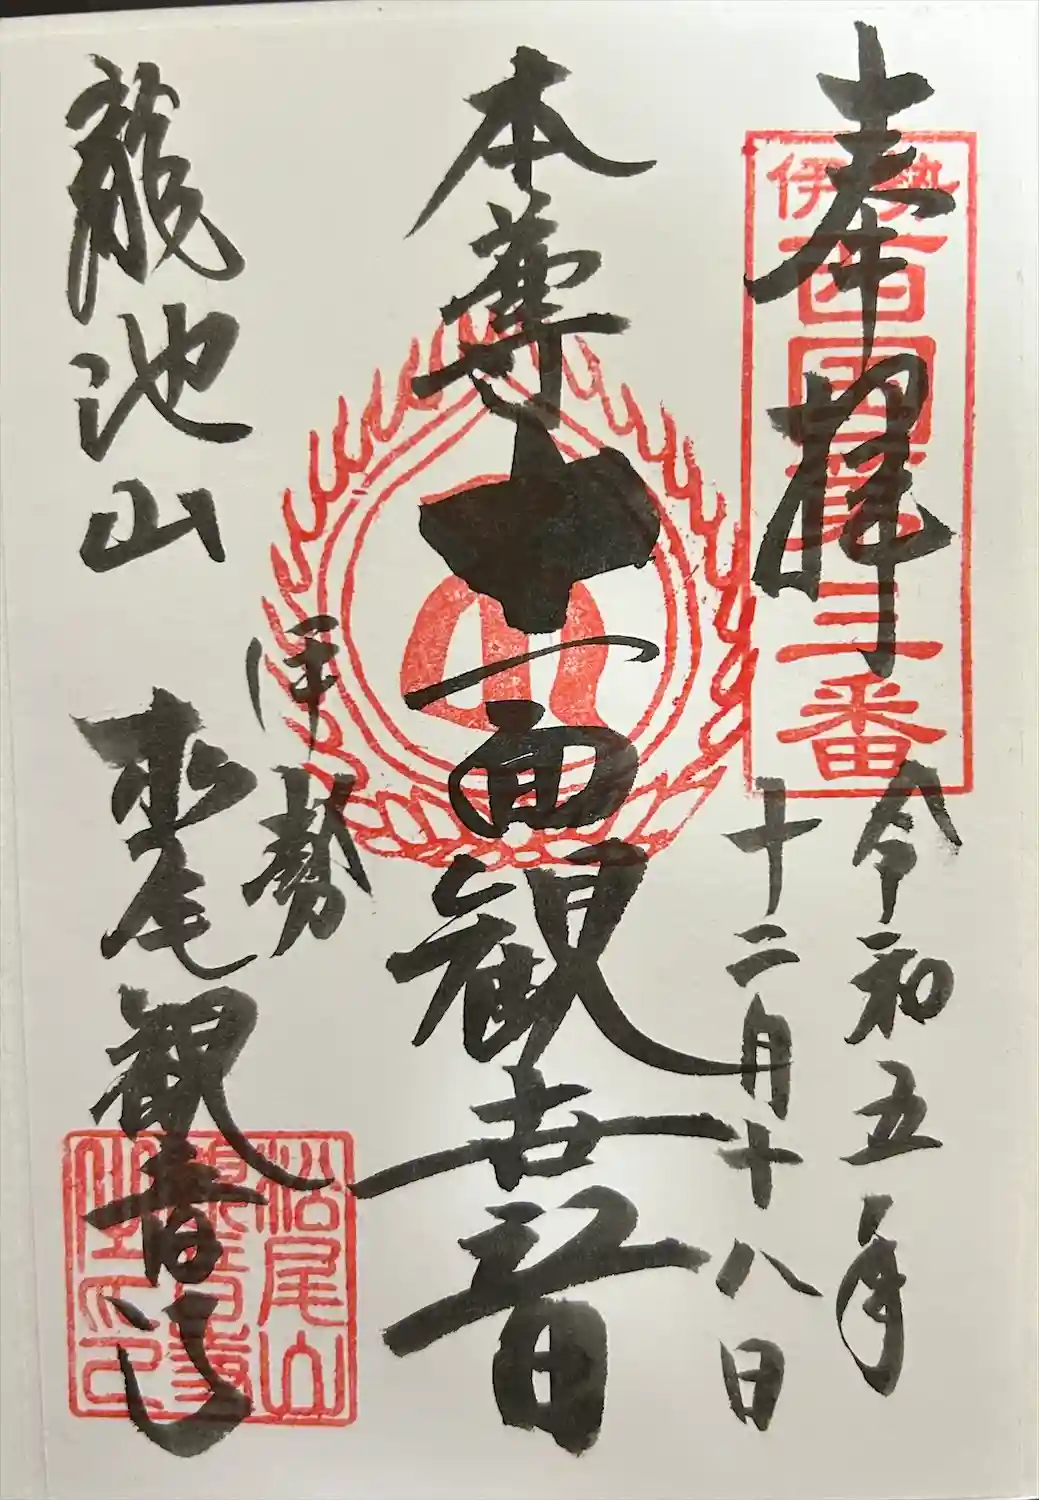 奉拝
伊勢
西国第
三番
令和五年
十二月十八日
本尊
十一面観世音
伊勢
龍池山
松尾観音寺
松尾山